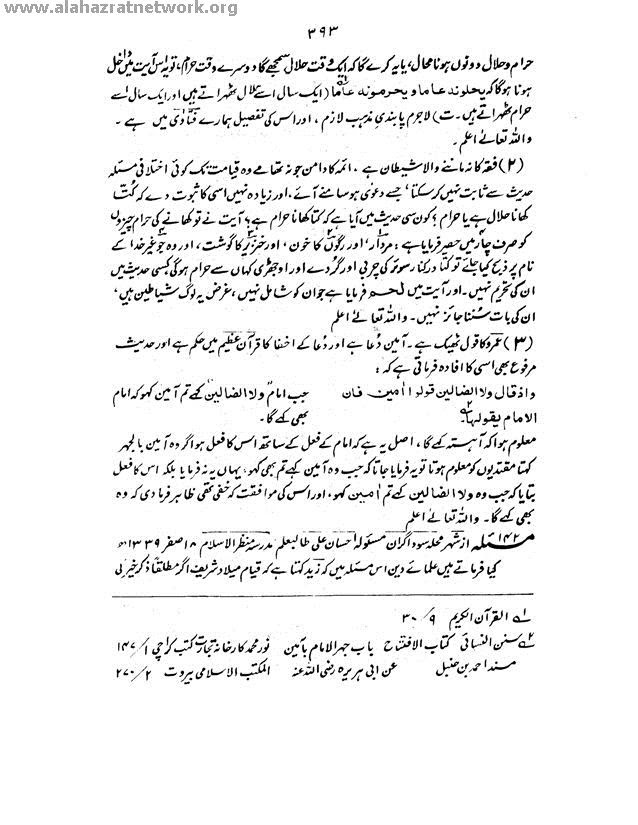 www.alahazratnetwork.org
۳۹۳
حرام وحلال دونوں ہونا محال، یا یہ کرے گا کہ ایک وقت حلال سمجھے گا دوسرے وقت حرام، تو یہ اس آیت میں داخل
ہونا ہوگا کہ یحلونہ عاما ویحرمونہ عاما (ایک سال اسے حلال ٹھہراتے ہیں اور ایک سال اسے
حرام ٹھہراتے ہیں۔ ت) لاجرم پابندیِ مذہب لازم، اور اس کی تفصیل ہمارے فتاوٰی میں ہے۔
واللہ تعالٰے اعلم۔
(۲) فقہ کا نہ ماننے والا شیطان ہے، ائمہ کا دامن جو نہ تھامے وہ قیامت تک کوئی اختلافی مسئلہ
حدیث سے ثابت نہیں کرسکتا، جسے دعوٰی ہو سامنے آئے، اور زیادہ نہیں اسی کا ثبوت دے کہ کُتّا
کھانا حلال ہے یا حرام؟ کون سی حدیث میں آیا ہے کہ کتا کھانا حرام ہے؟ آیت نے تو کھانے کی حرام چیزوں
کو صرف چار میں حصر فرمایا ہے: مردار، اور رگوں کا خون، اور خنزیر کا گوشت، اور وہ جو غیر خدا کے
نام پر ذبح کیا جائے تو کتا درکنار سوئر کی چربی اور گُردے اور اوجھڑی کہاں سے حرام ہوگی کسی حدیث میں
ان کی تحریم نہیں۔ اور آیت میں لحم فرمایا ہے جو ان کو شامل نہیں، غرض یہ لوگ شیاطین ہیں،
ان کی بات سُننا جائز نہیں۔ واللہ تعالٰے اعلم
(۳) عمرو کا قول ٹھیک ہے۔ آمین دُعا ہے اور دُعا کے اخفا کا قرآن عظیم میں حکم ہے اور حدیث
مرفوع بھی اسی کا افادہ فرماتی ہے کہ:
واذ قال ولا الضالین قولوا اٰمین فان الامام یقولہا۲؎
جب امام ولا الضالین کہے تم آمین کہو کہ امام بھی کہے گا۔
معلوم ہوا کہ آہستہ کہے گا، اصل یہ ہے کہ امام کے فعل کے ساتھ اس کا فعل ہو اگر وہ آمین بالجہر
کہتا مقتدیوں کو معلوم ہوتا تو یہ فرمایا جاتا کہ جب وہ آمین کہے تم بھی کہو، یہاں یہ نہ فرمایا بلکہ اس کا فعل
بتایا کہ جب وہ ولا الضالین کہے تم اٰمین کہو، اور اس کی موافقت کہ خفی تھی ظاہر فرمادی کہ وہ
بھی کہے گا۔ واللہ تعالٰے اعلم
مسئلہ ۱۴۲ از شہر محلہ سوداگران مسئولہ احسان علی طالبعلم مدرسہ منظر الاسلام ۱۸ صفر ۱۳۳۹ھ
کیا فرماتے ہیں علمائے دین اس مسئلہ میں کہ زید کہتا ہے کہ قیام میلاد شریف اگر مطلقاً ذکر خیر کی
۱؎ القرآن الکریم ۹/ ۳۰
۲؎ سنن النسائی کتاب الافتتاح باب جہر الامام بآمین نور محمد کارخانہ تجارت کتب کراچی ۱/ ۱۴۷
مسند احمد بن حنبل عن ابی ہریرہ رضی اللہ عنہ المکتب الاسلامی بیروت ۲/ ۲۷۰